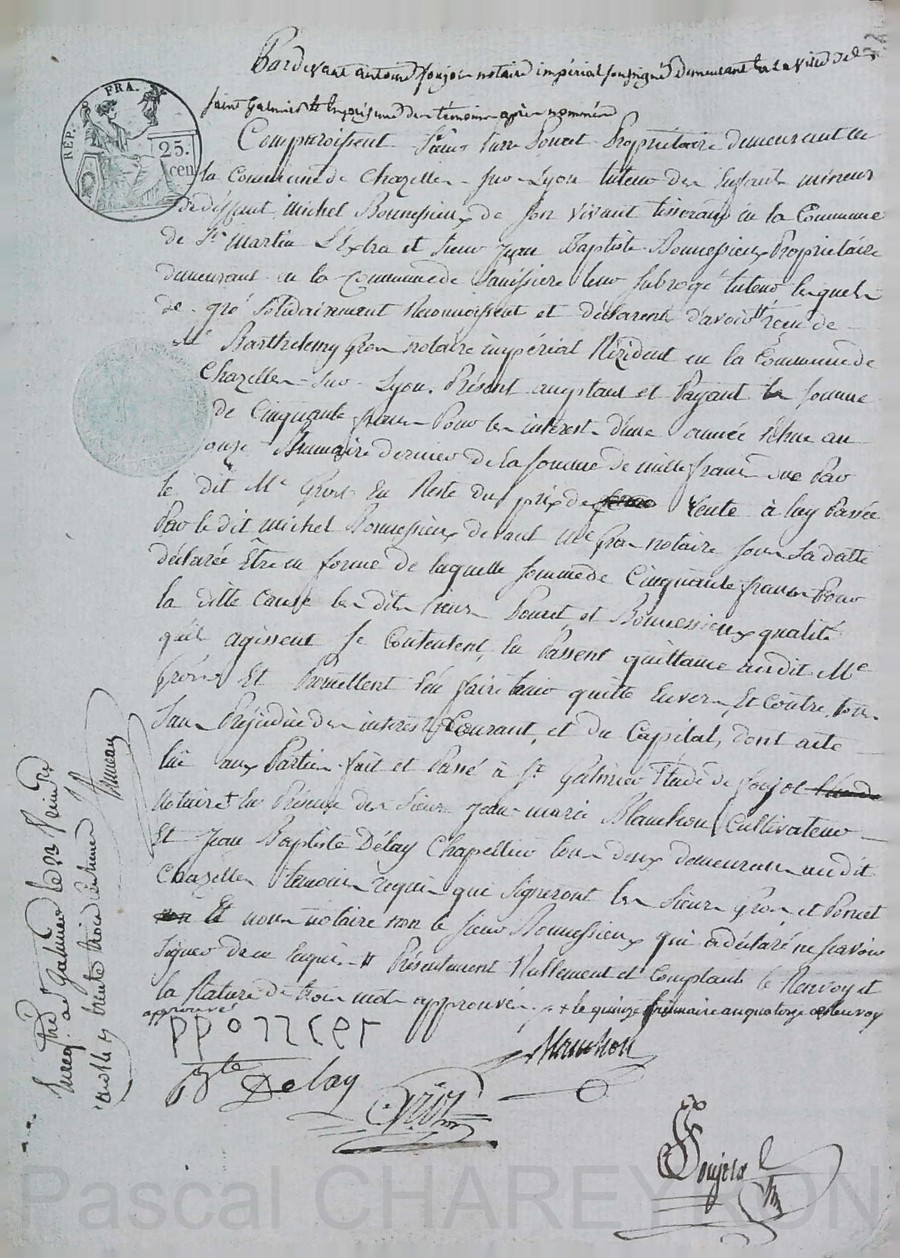 Pardevant antoine foujol notaire impérial soussigné demeurant en la ville de
saint Galmier et en présence des témoins après nommés
REP. FRA.
25. cen
Comproissent Sieur Pierre Poncet Propriétaire demeurant en
la Commune de Chazelles sur Lyon tuteur des Enfants mineurs
de déffunt michel Bonnessieux de son vivant tisserand en la Commune
de St martin L'Estra et Sieur Jean Baptiste Bonnessieux Propriétaire
demeurant en la Commune de leur subrogé tuteur lesquels
de gré Solidairement Reconnoissent et déclarent d'avoir tt reçu de
Me Barthelemy Gron notaire impérial Rézident en la Commune de
Chazelles sur Lyon. Présent acceptant et Payant la somme
de Cinquante francs Pour les interest d'une année échue au
onze Brumaire dernier de la somme de mille francs due Par
le dit Me Gron En Reste du prix de Vente à luy Passée
Par le dit michel Bonnessieux devant Me notaire sous sa datte
déclarée Etre en forme de laquelle somme de Cinquante francs Pour
la ditte Cause les dits Sieurs Poncet et Bonnessieux qualité
qu'il agissent Se Contentent, En Passent quittance audit Me
Gron Et Promettent l'en faire tenir quitte Envers Et Contre tous
Sans Préjudice des interest Courant, et du Capital, dont acte
lû aux Parties fait et Passé à St Galmier Etude de foujol
notaire En Présence des Sieurs Jean marie Blanchon Cultivateur
Et Jean Baptiste Délay Chapellier tous deux demeurans audit
Chazelles témoins requis qui signeront les Sieurs Gron et Poncet
et nous notaire non le Sieur Bonnessieux qui a déclaré ne sçavoir
Signer de ce Enquis tt Présentement Réellement et Comptant le Renvoy et
la Rature de trois mots approuvés + le quinze frimaire an quatorze renvoy
approuvé
pponcet
Blanchon
Bte Delay
Gron
Foujol
Enreg tré a st Galmier le 23 frimaire
Pascal CHAREYRON